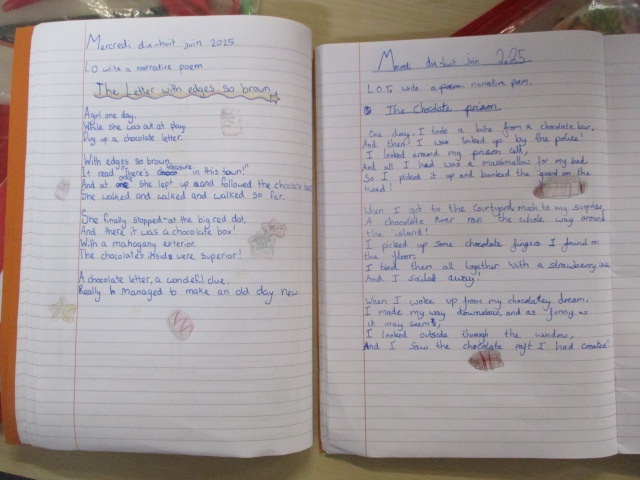 Mercredi dix-huit juin 2025
LO write a narrative poem
The Letter with edges so brown
A girl one day,
While she was out at play
Dug up a chocolate letter.
With edges so brown,
It read "There's treasure in this town!"
And at once she lept up and followed the chocolate
She walked and walked and walked so far.
She finally stopped at the big red dot,
And there it was a chocolate box!
With a mahogany exterior.
The chocolates inside were superior!
A chocolate letter, a wondeful clue,
Really managed to make an old day new.
dix-huit juin 2025
L.O. To write a narrative poem.
The Chocolate prison.
One day, I took a bite from a chocolate bar,
And then I was locked up by the police!
I looked around my prison cell,
And all I had was a marshmallow for my bed
So I picked it up and bonked the guard on the
head!
When I got to the courtyard, much to my surprise,
A chocolate river ran the whole way around
the island!
I picked up some chocolate fingers I found on
the floor,
I tied them all together with a strawberry
And I sailed away!
When I woke up from my chocolatey dream,
I made my way downstairs, and as funny as
it may seem,
I looked outside through the window,
And I saw the chocolate raft I had created!